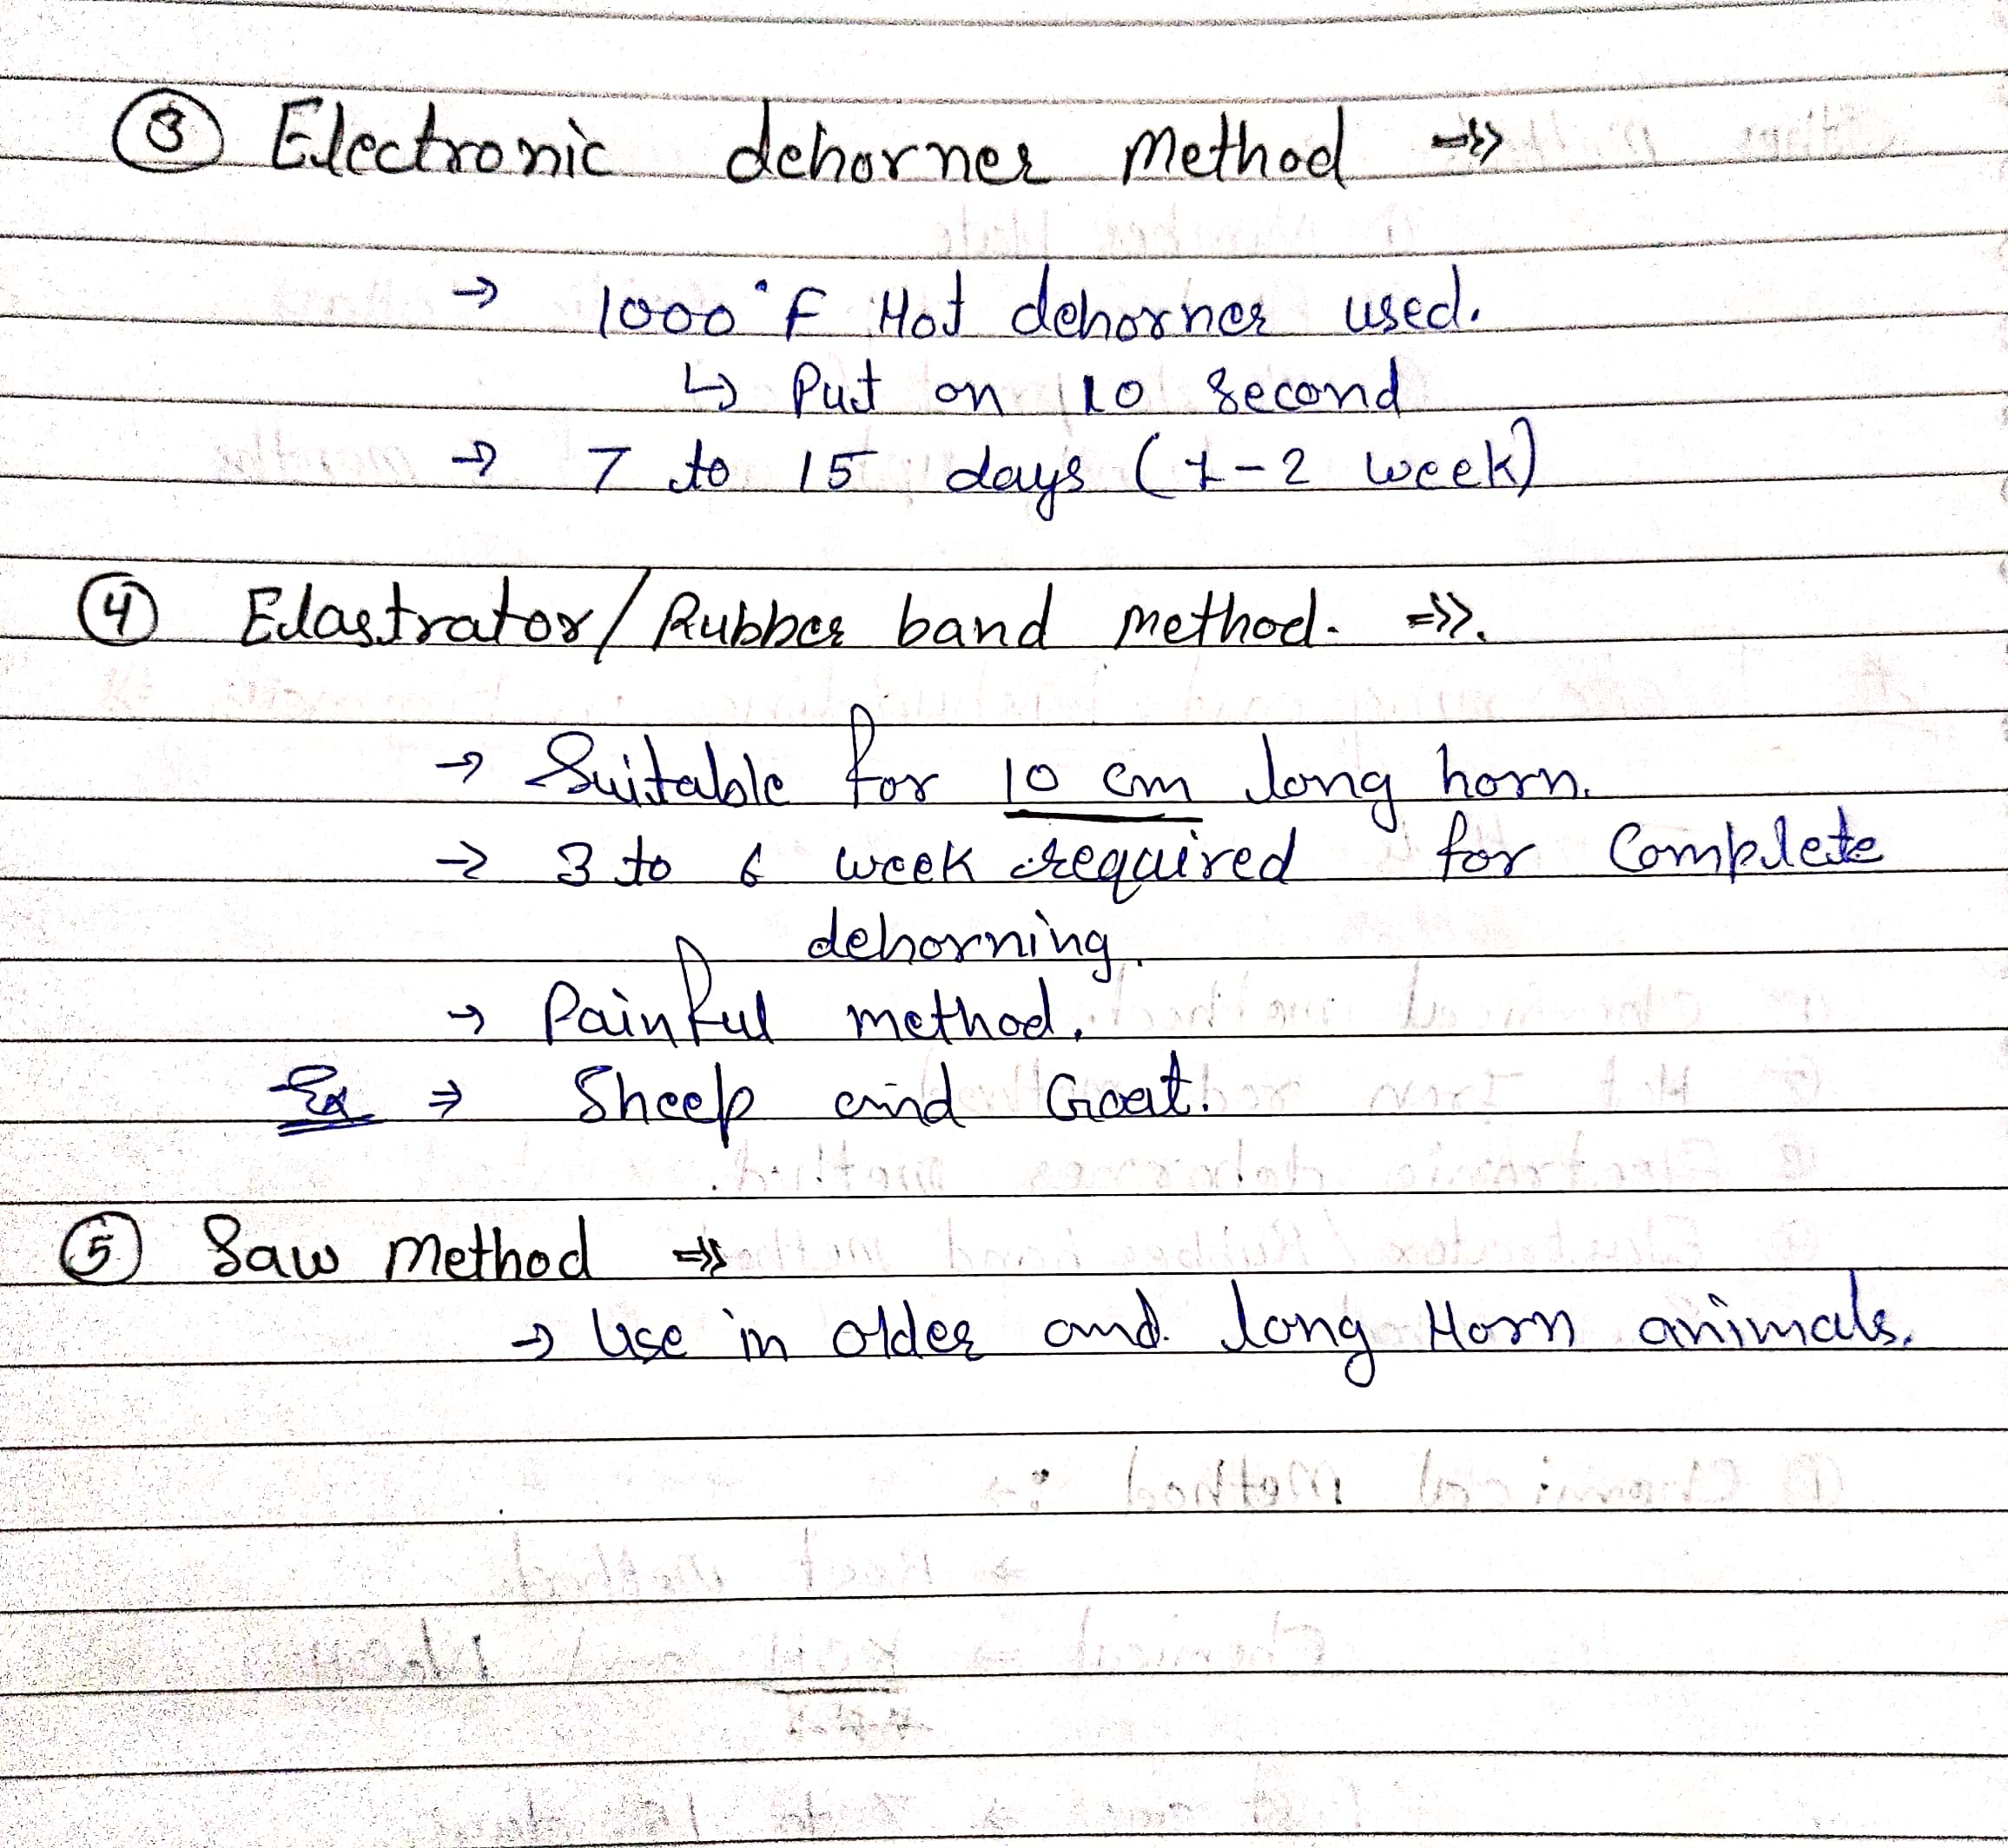 ③ Electronic dehorner Method ⇒>
→ 1000°F Hot dehorner used.
↳ Put on 10 second
→ 7 to 15 days (1-2 week)
④ Elastrator/Rubber band method. ⇒>.
→ Suitable for 10 cm long horn.
→ 3 to 6 week required for Complete
dehorning.
→ Painful method.
Ex ⇒ Sheep and Goat.
⑤ Saw Method ⇒>
→ Use in older and long Horn animals.